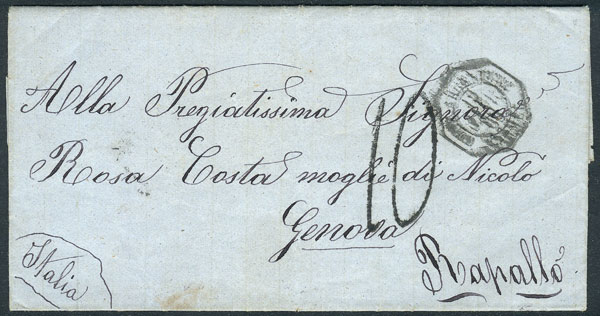 Alla Pregiatissima Signora
Rosa Costa moglie di Nicolò
Genova
10
Italia
Rapallo